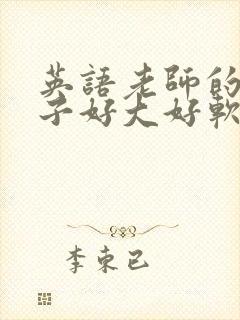 英語老師的
子好大好軟
李束已